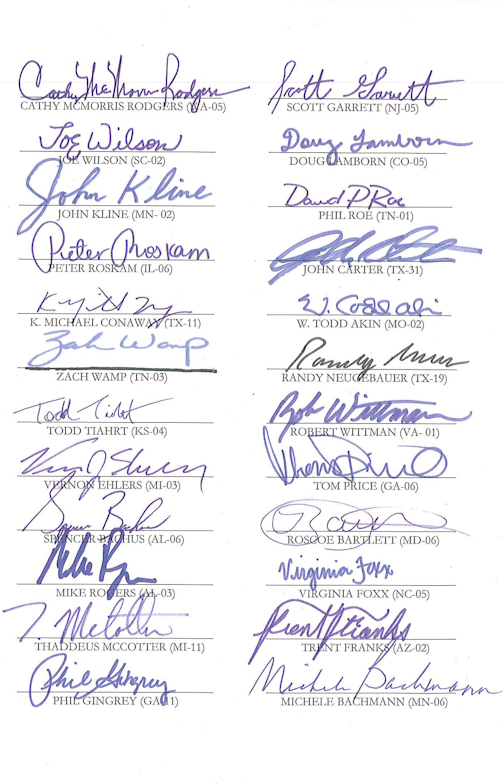 Cathy McMorris Rodgers
CATHY MCMORRIS RODGERS (WA-05)
Scott Garrett
SCOTT GARRETT (NJ-05)
Joe Wilson
JOE WILSON (SC-02)
Doug Lamborn
DOUG LAMBORN (CO-05)
John Kline
JOHN KLINE (MN- 02)
David P Roe
PHIL ROE (TN-01)
Peter Roskam
PETER ROSKAM (IL-06)
JOHN CARTER (TX-31)
K. MICHAEL CONAWAY (TX-11)
W. Todd Akin
W. TODD AKIN (MO-02)
Zach Wamp
ZACH WAMP (TN-03)
Randy
RANDY NEUGEBAUER (TX-19)
Todd Tiahrt
TODD TIAHRT (KS-04)
Rob Wittman
ROBERT WITTMAN (VA- 01)
Vern J Ehlers
VERNON EHLERS (MI-03)
Thomas Price
TOM PRICE (GA-06)
Spencer Bachus
SPENCER BACHUS (AL-06)
ROSCOE BARTLETT (MD-06)
Mike Rogers
MIKE ROGERS (AL-03)
Virginia Foxx
VIRGINIA FOXX (NC-05)
T. McCotter
THADDEUS MCCOTTER (MI-11)
Trent Franks
TRENT FRANKS (AZ-02)
Phil Gingrey
PHIL GINGREY (GA-11)
Michele Bachmann
MICHELE BACHMANN (MN-06)